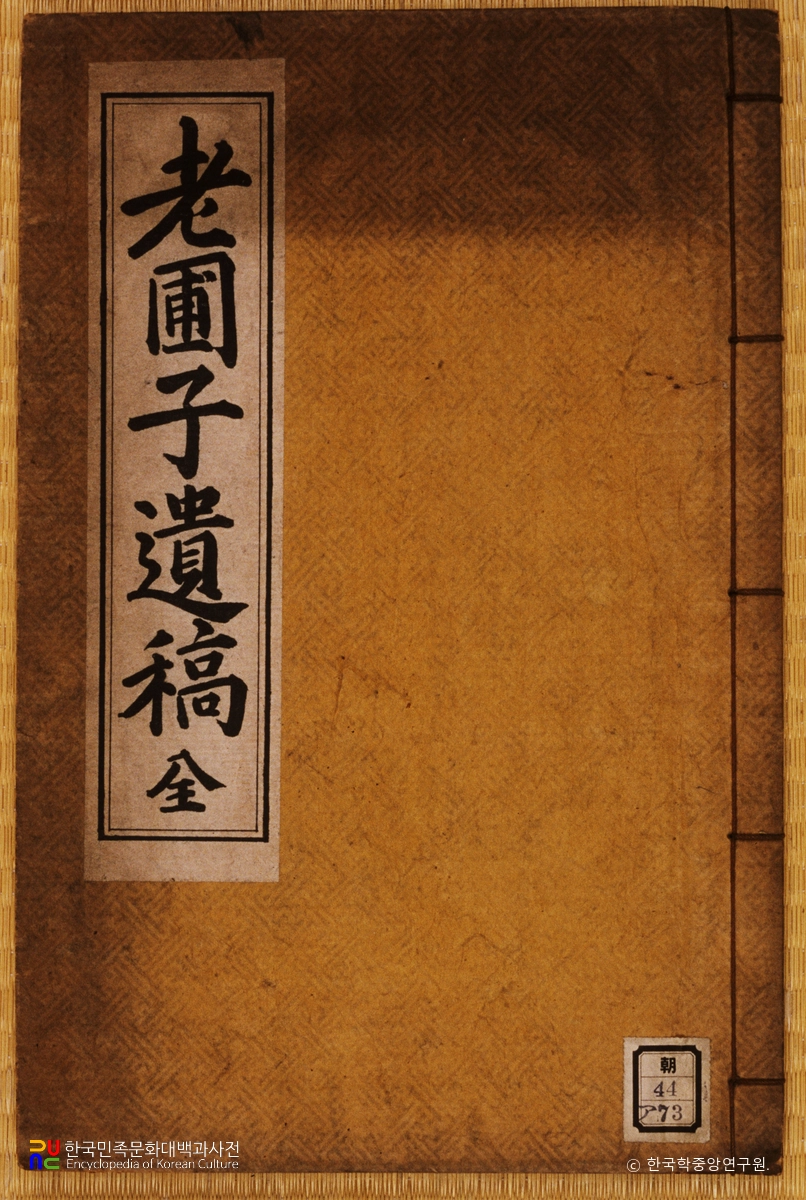 老圃子遺稿 全
朝
44
ア73
한국민족문화대백과사전
Encyclopedia of Korean Culture
ⓒ 한국학중앙연구원.